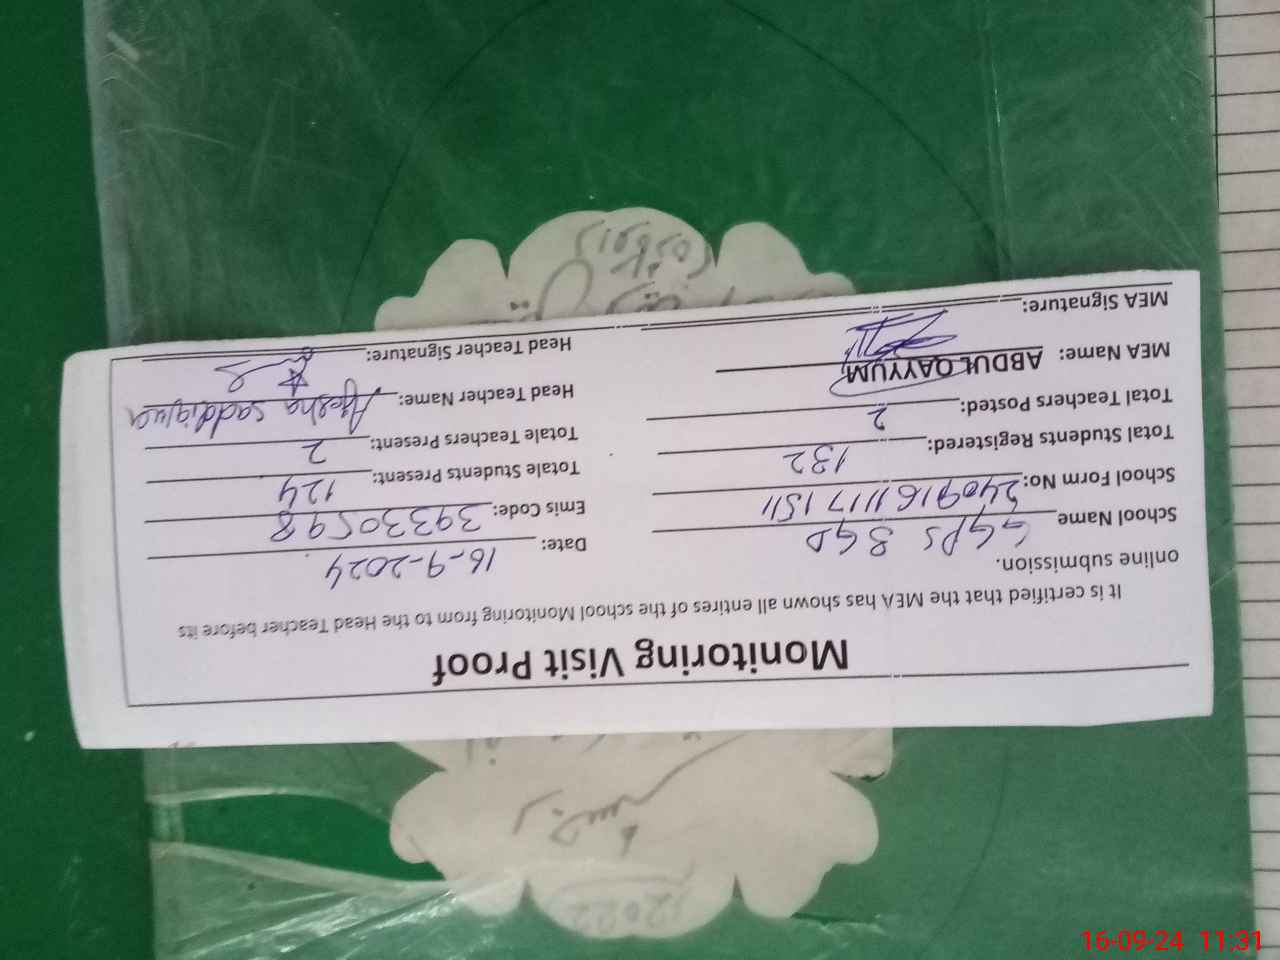 Monitoring Visit Proof
It is certified that the MEA has shown all entires of the school Monitoring from to the Head Teacher before its
online submission.
School Name GGPS 8GD Date: 16-9-2024
School Form No: 24091611171511 Emis Code: 39330598
Total Students Registered: 132 Totale Students Present: 124
Total Teachers Posted: 2 Totale Teachers Present: 2
MEA Name: ABDUL QAYYUM Head Teacher Name: Ayesha saddiqua
MEA Signature: Head Teacher Signature:
2022
16-09-24 11:31